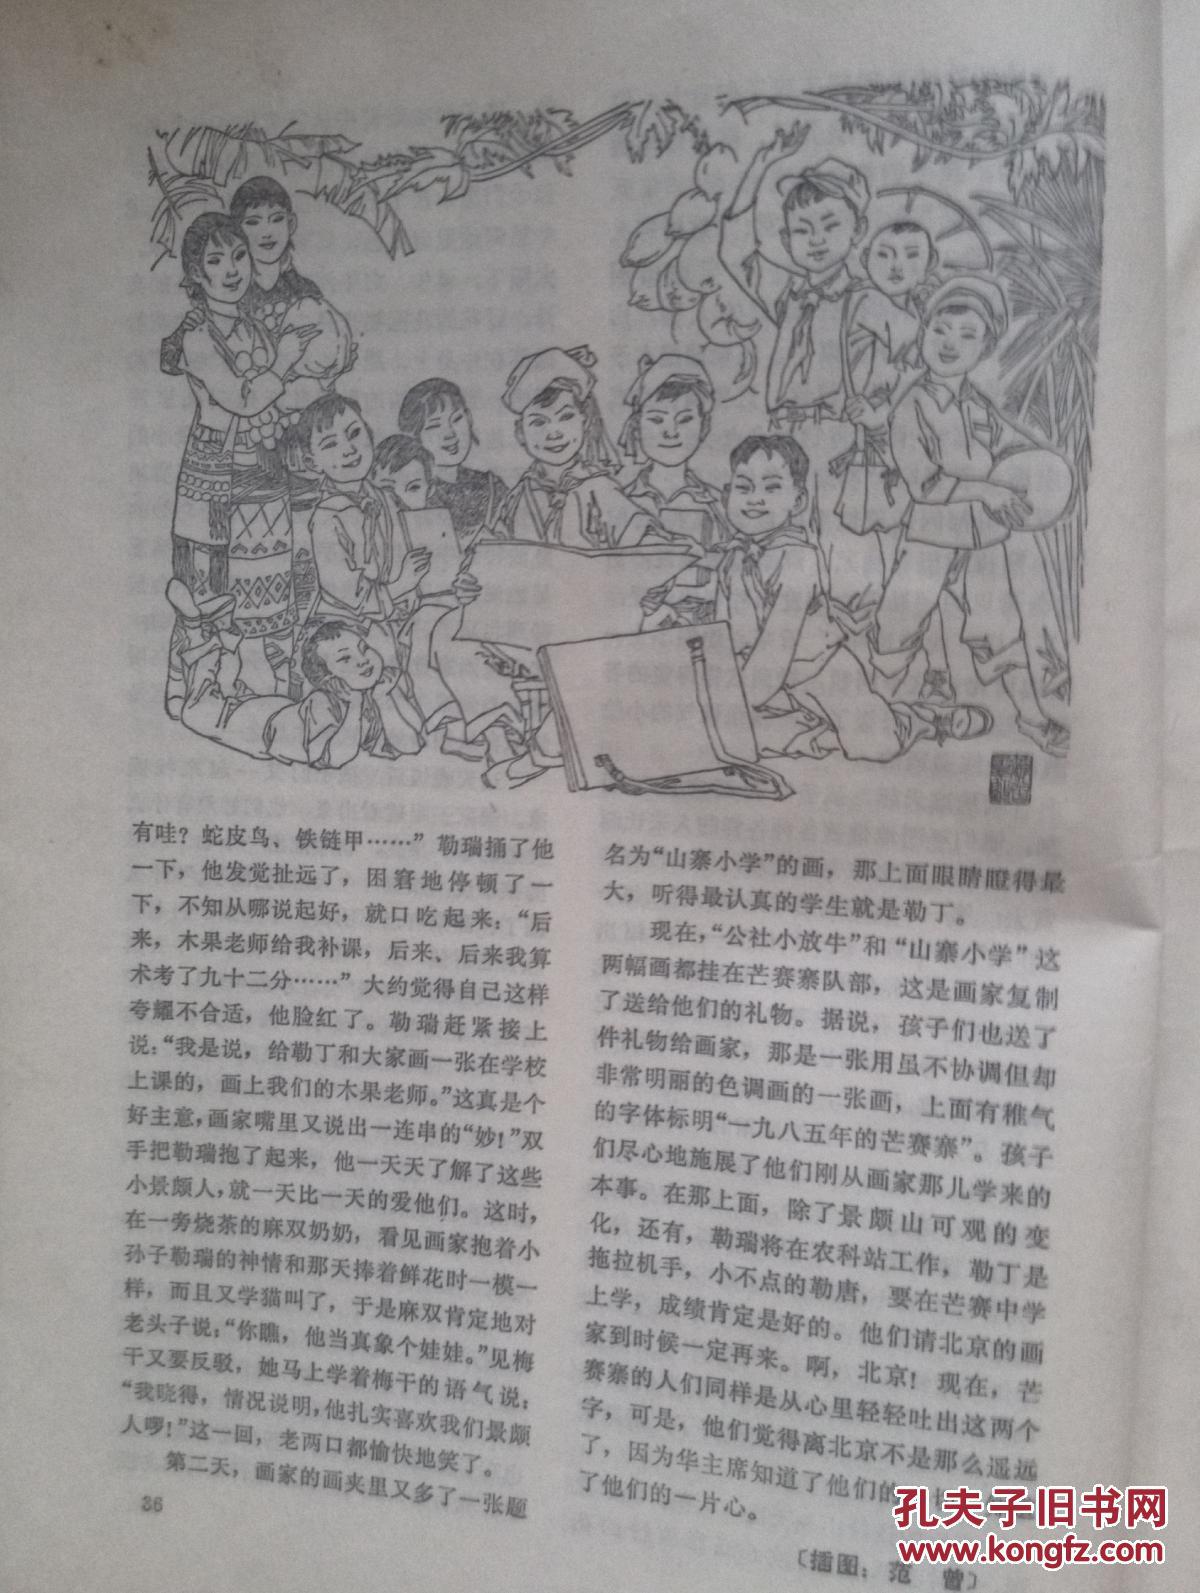 有哇？蛇皮鸟、铁链甲……”勒瑞捅了他
一下，他发觉扯远了，困窘地停顿了一
下，不知从哪说起好，就口吃起来：“后
来，木果老师给我补课，后来、后来我算
术考了九十二分……”大约觉得自己这样
夸耀不合适，他脸红了。勒瑞赶紧接上
说：“我是说，给勒丁和大家画一张在学校
上课的，画上我们的木果老师。”这真是个
好主意，画家嘴里又说出一连串的“妙！”双
手把勒瑞抱了起来，他一天天了解了这些
小景颇人，就一天比一天的爱他们。这时，
在一旁烧茶的麻双奶奶，看见画家抱着小
孙子勒瑞的神情和那天捧着鲜花时一模一
样，而且又学猫叫了，于是麻双肯定地对
老头子说：“你瞧，他当真象个娃娃。”见梅
干又要反驳，她马上学着梅干的语气说：
“我晓得，情况说明，他扎实喜欢我们景颇
人啰！”这一回，老两口都愉快地笑了。
第二天，画家的画夹里又多了一张题
36
名为“山寨小学”的画，那上面眼睛瞪得最
大，听得最认真的学生就是勒丁。
现在，“公社小放牛”和“山寨小学”这
两幅画都挂在芒赛寨队部，这是画家复制
了送给他们的礼物。据说，孩子们也送了
件礼物给画家，那是一张用虽不协调但却
非常明丽的色调画的一张画，上面有稚气
的字体标明“一九八五年的芒赛寨”。孩子
们尽心地施展了他们刚从画家那儿学来的
本事。在那上面，除了景颇山可观的变
化，还有，勒瑞将在农科站工作，勒丁是
拖拉机手，小不点的勒唐，要在芒赛中学
上学，成绩肯定是好的。他们请北京的画
家到时候一定再来。啊，北京！现在，芒
赛寨的人们同样是从心里轻轻吐出这两个
字，可是，他们觉得离北京不是那么遥远
了，因为华主席知道了他们的
了他们的一片心。
〔插图：范 曾〕
孔夫子旧书网
www.kongfz.com